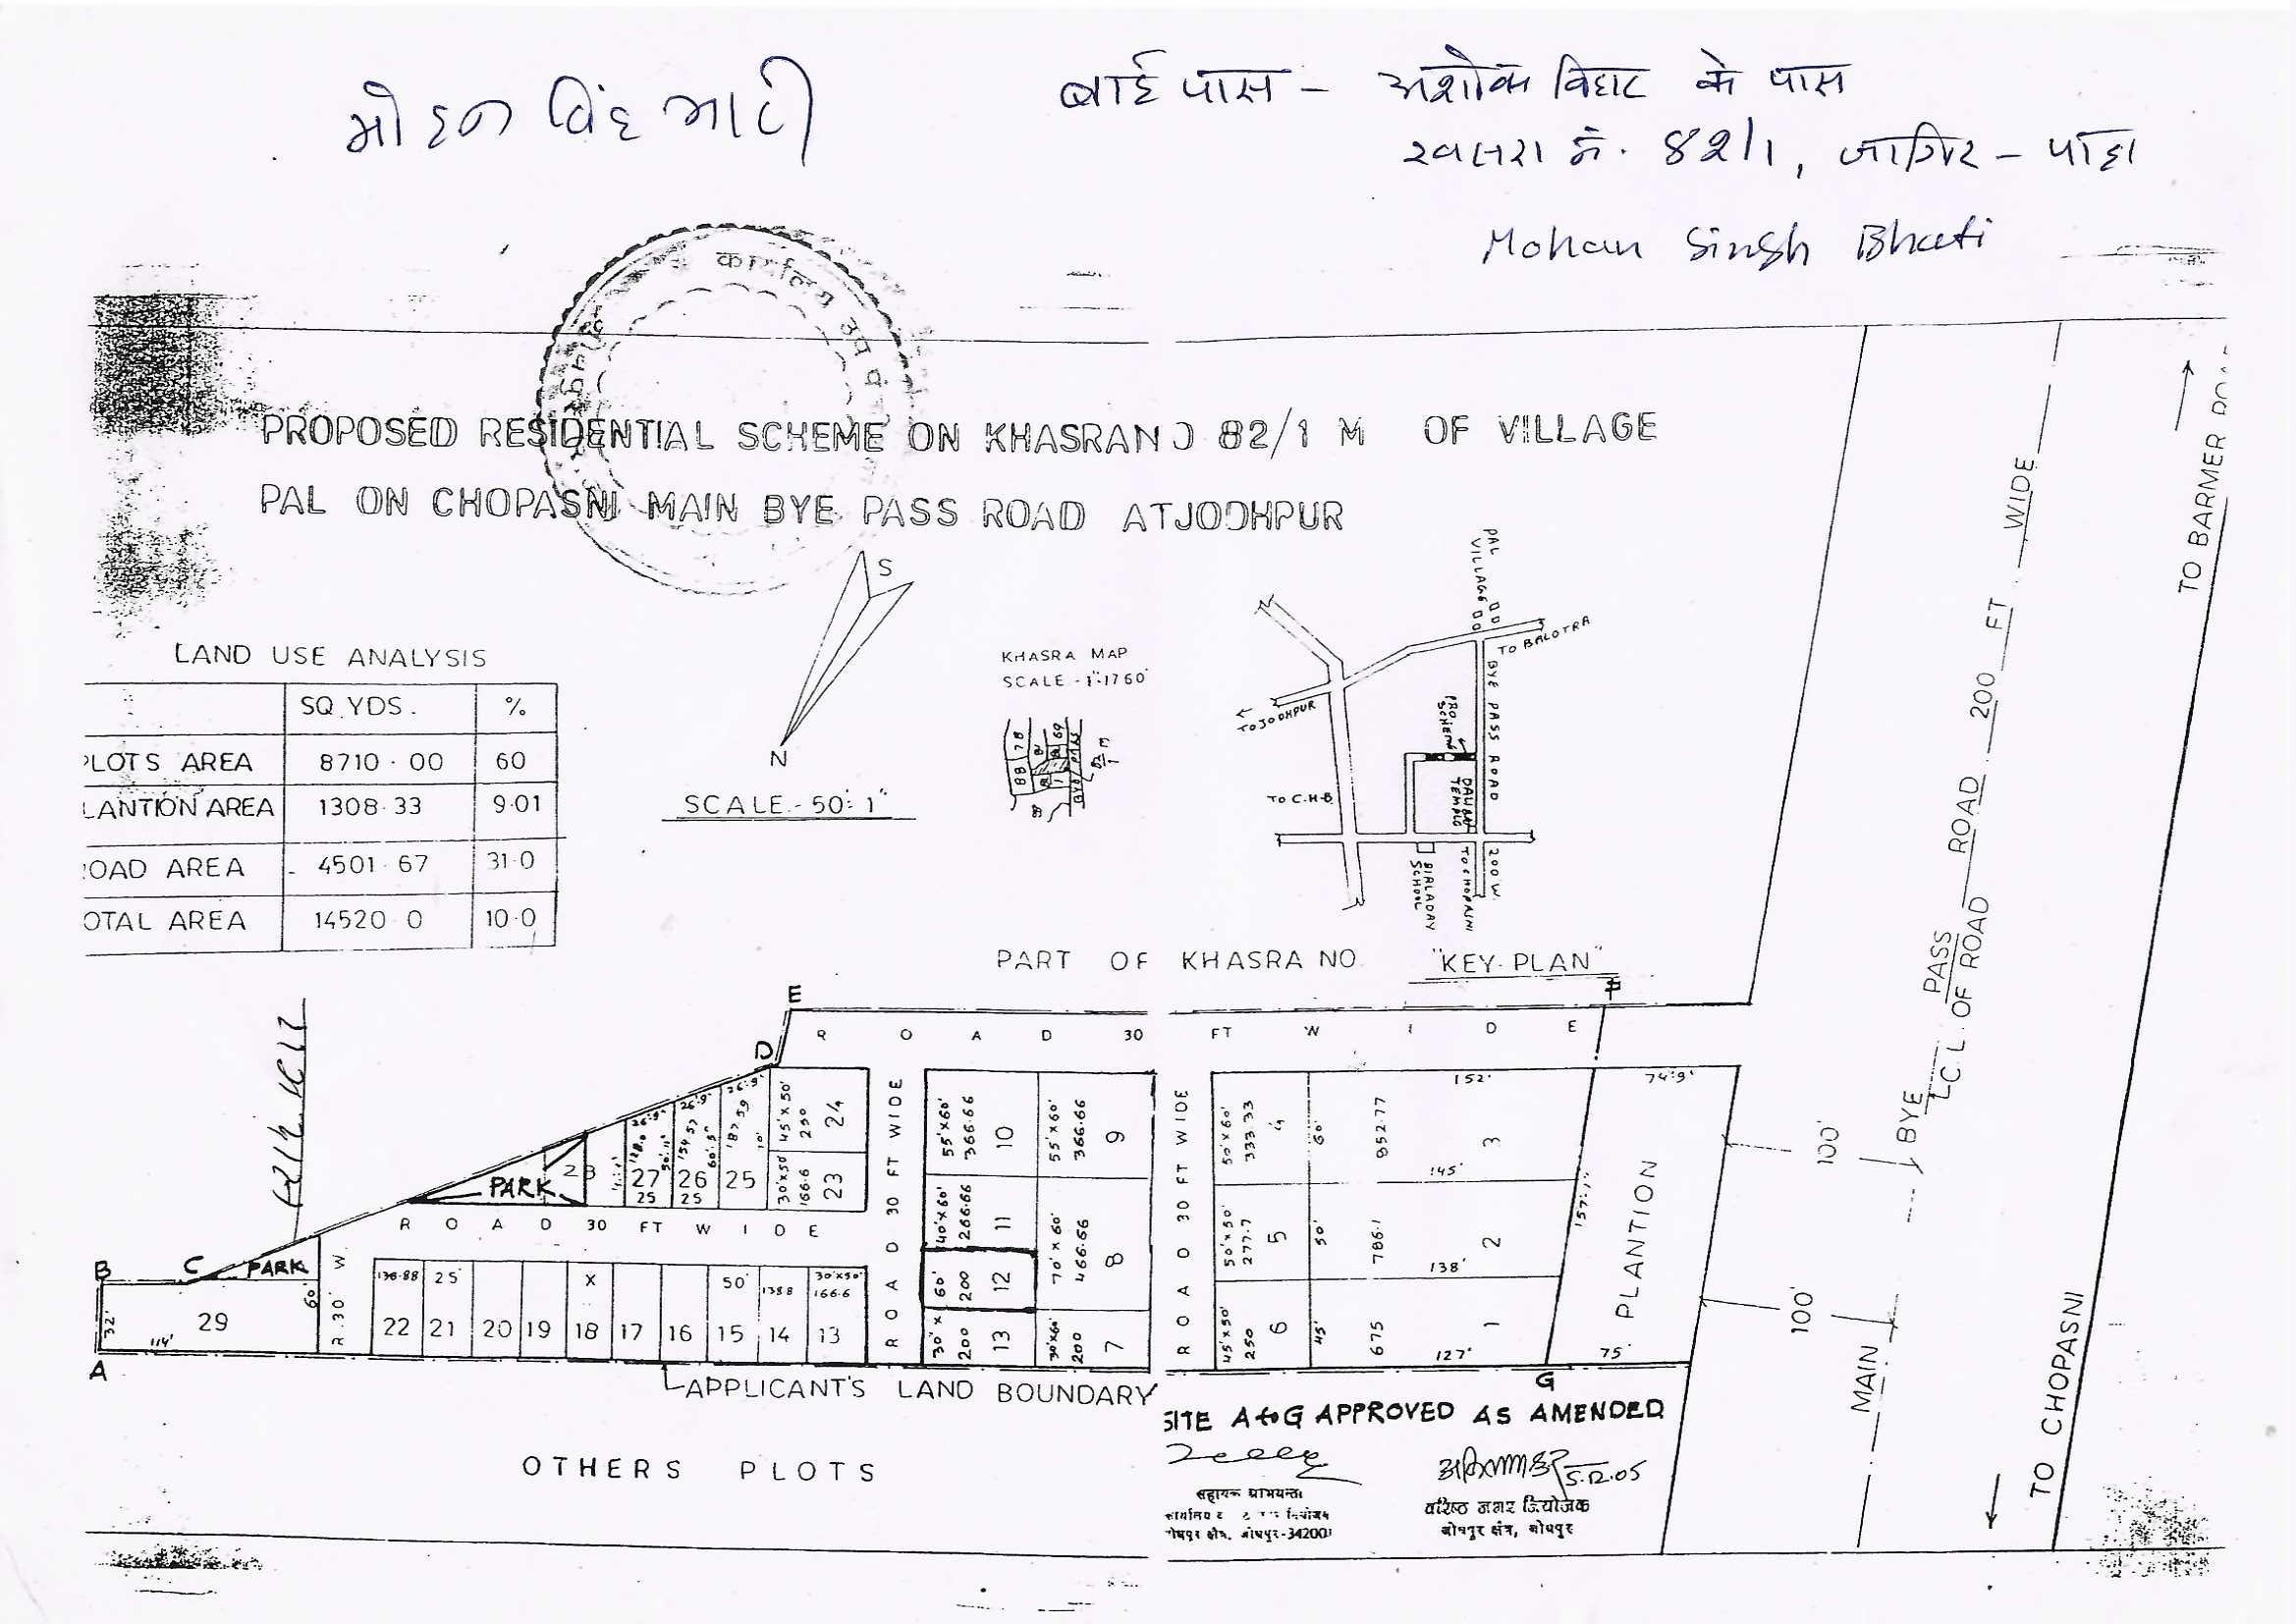 मोहन सिंह भाटी
बाई पास - अशोक विहार के पास
खसरा नं. 82/1, जागिर -
Mohan Singh Bhati
कार्यालय उप
PROPOSED RESIDENTIAL SCHEME ON KHASRA NO 82/1 M OF VILLAGE
PAL ON CHOPASNI MAIN BYE PASS ROAD AT JODHPUR
S
N
SCALE.- 50'= 1"
LAND USE ANALYSIS
SQ.YDS. %
PLOTS AREA 8710.00 60
LANTION AREA 1308.33 9.01
ROAD AREA 4501.67 31.0
OTAL AREA 14520.0 10.0
KHASRA MAP
SCALE - 1"-1760'
PAL VILLAGE
TO BALOTRA
TO JODHPUR
BYE PASS ROAD
PRO. SCHEME
TO C.H.B.
TEMPLE
SCHOOL
TO CHOPASNI
200 W.
"KEY-PLAN"
PART OF KHASRA NO.
TO BARMER
MAIN BYE PASS ROAD 200 FT WIDE
C.L. OF ROAD
TO CHOPASNI
100'
100'
E
F
D
ROAD 30 FT WIDE
26'.9" 26'.9" 26'.9"
45'x50' 250 24
30'x50' 166.6 23
28 27 26 25
25 25
PARK
ROAD 30 FT WIDE
B
C
PARK
32'
29
114'
60'
A
R. 30' W.
138.88 25' X 50' 138.8 30'x50' 166.6
22 21 20 19 18 17 16 15 14 13
ROAD 30 FT WIDE
55'x60' 366.66 10
55'x60' 366.66 9
40'x60' 266.66 11
30'x60' 200 12
70'x60' 466.66 8
200 13
30'x60' 200 7
ROAD 30 FT WIDE
50'x60' 333.33 4
60' 952.77 3
152'
145'
50'x50' 277.7 5
50' 786.1 2
138'
45'x50' 250 6
45' 675 1
127'
74'.9"
PLANTION
75'
G
APPLICANT'S LAND BOUNDARY
OTHERS PLOTS
SITE A to G APPROVED AS AMENDED
5.12.05
वरिष्ठ नगर नियोजक
जोधपुर क्षेत्र, जोधपुर
सहायक अभियन्ता
जोधपुर क्षेत्र, जोधपुर-342001